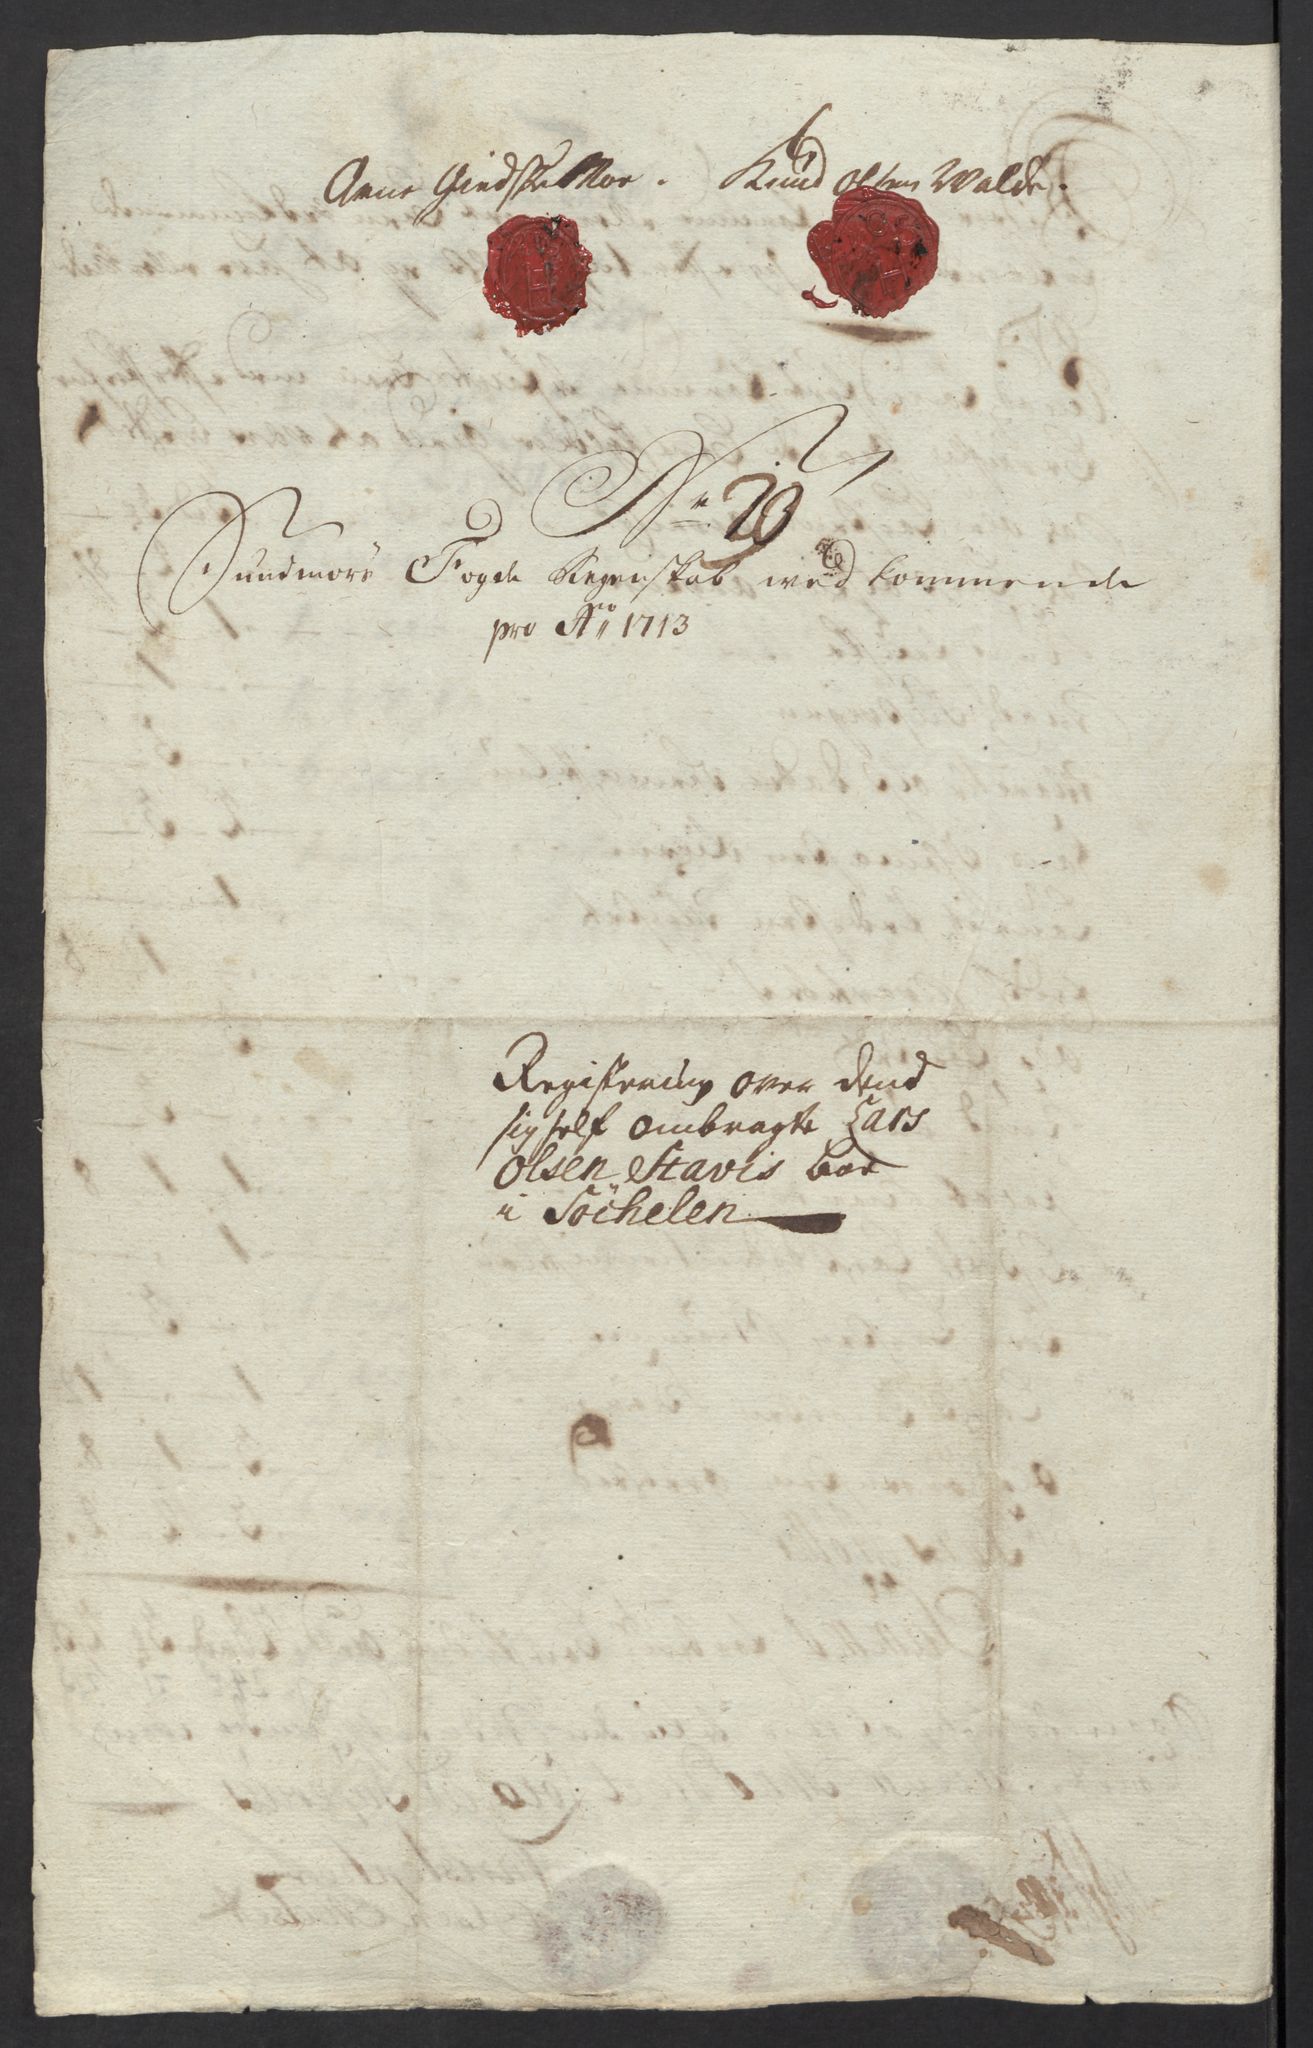 Arne Giedsche Moe. Knud Olsen Walde.
No. 20
Sundmørs Fogde Regenskab ved kommende
pro Ao 1713
Registering over dend
sig self ombragte Lars
Olsen Stavis boe
i Söchelen